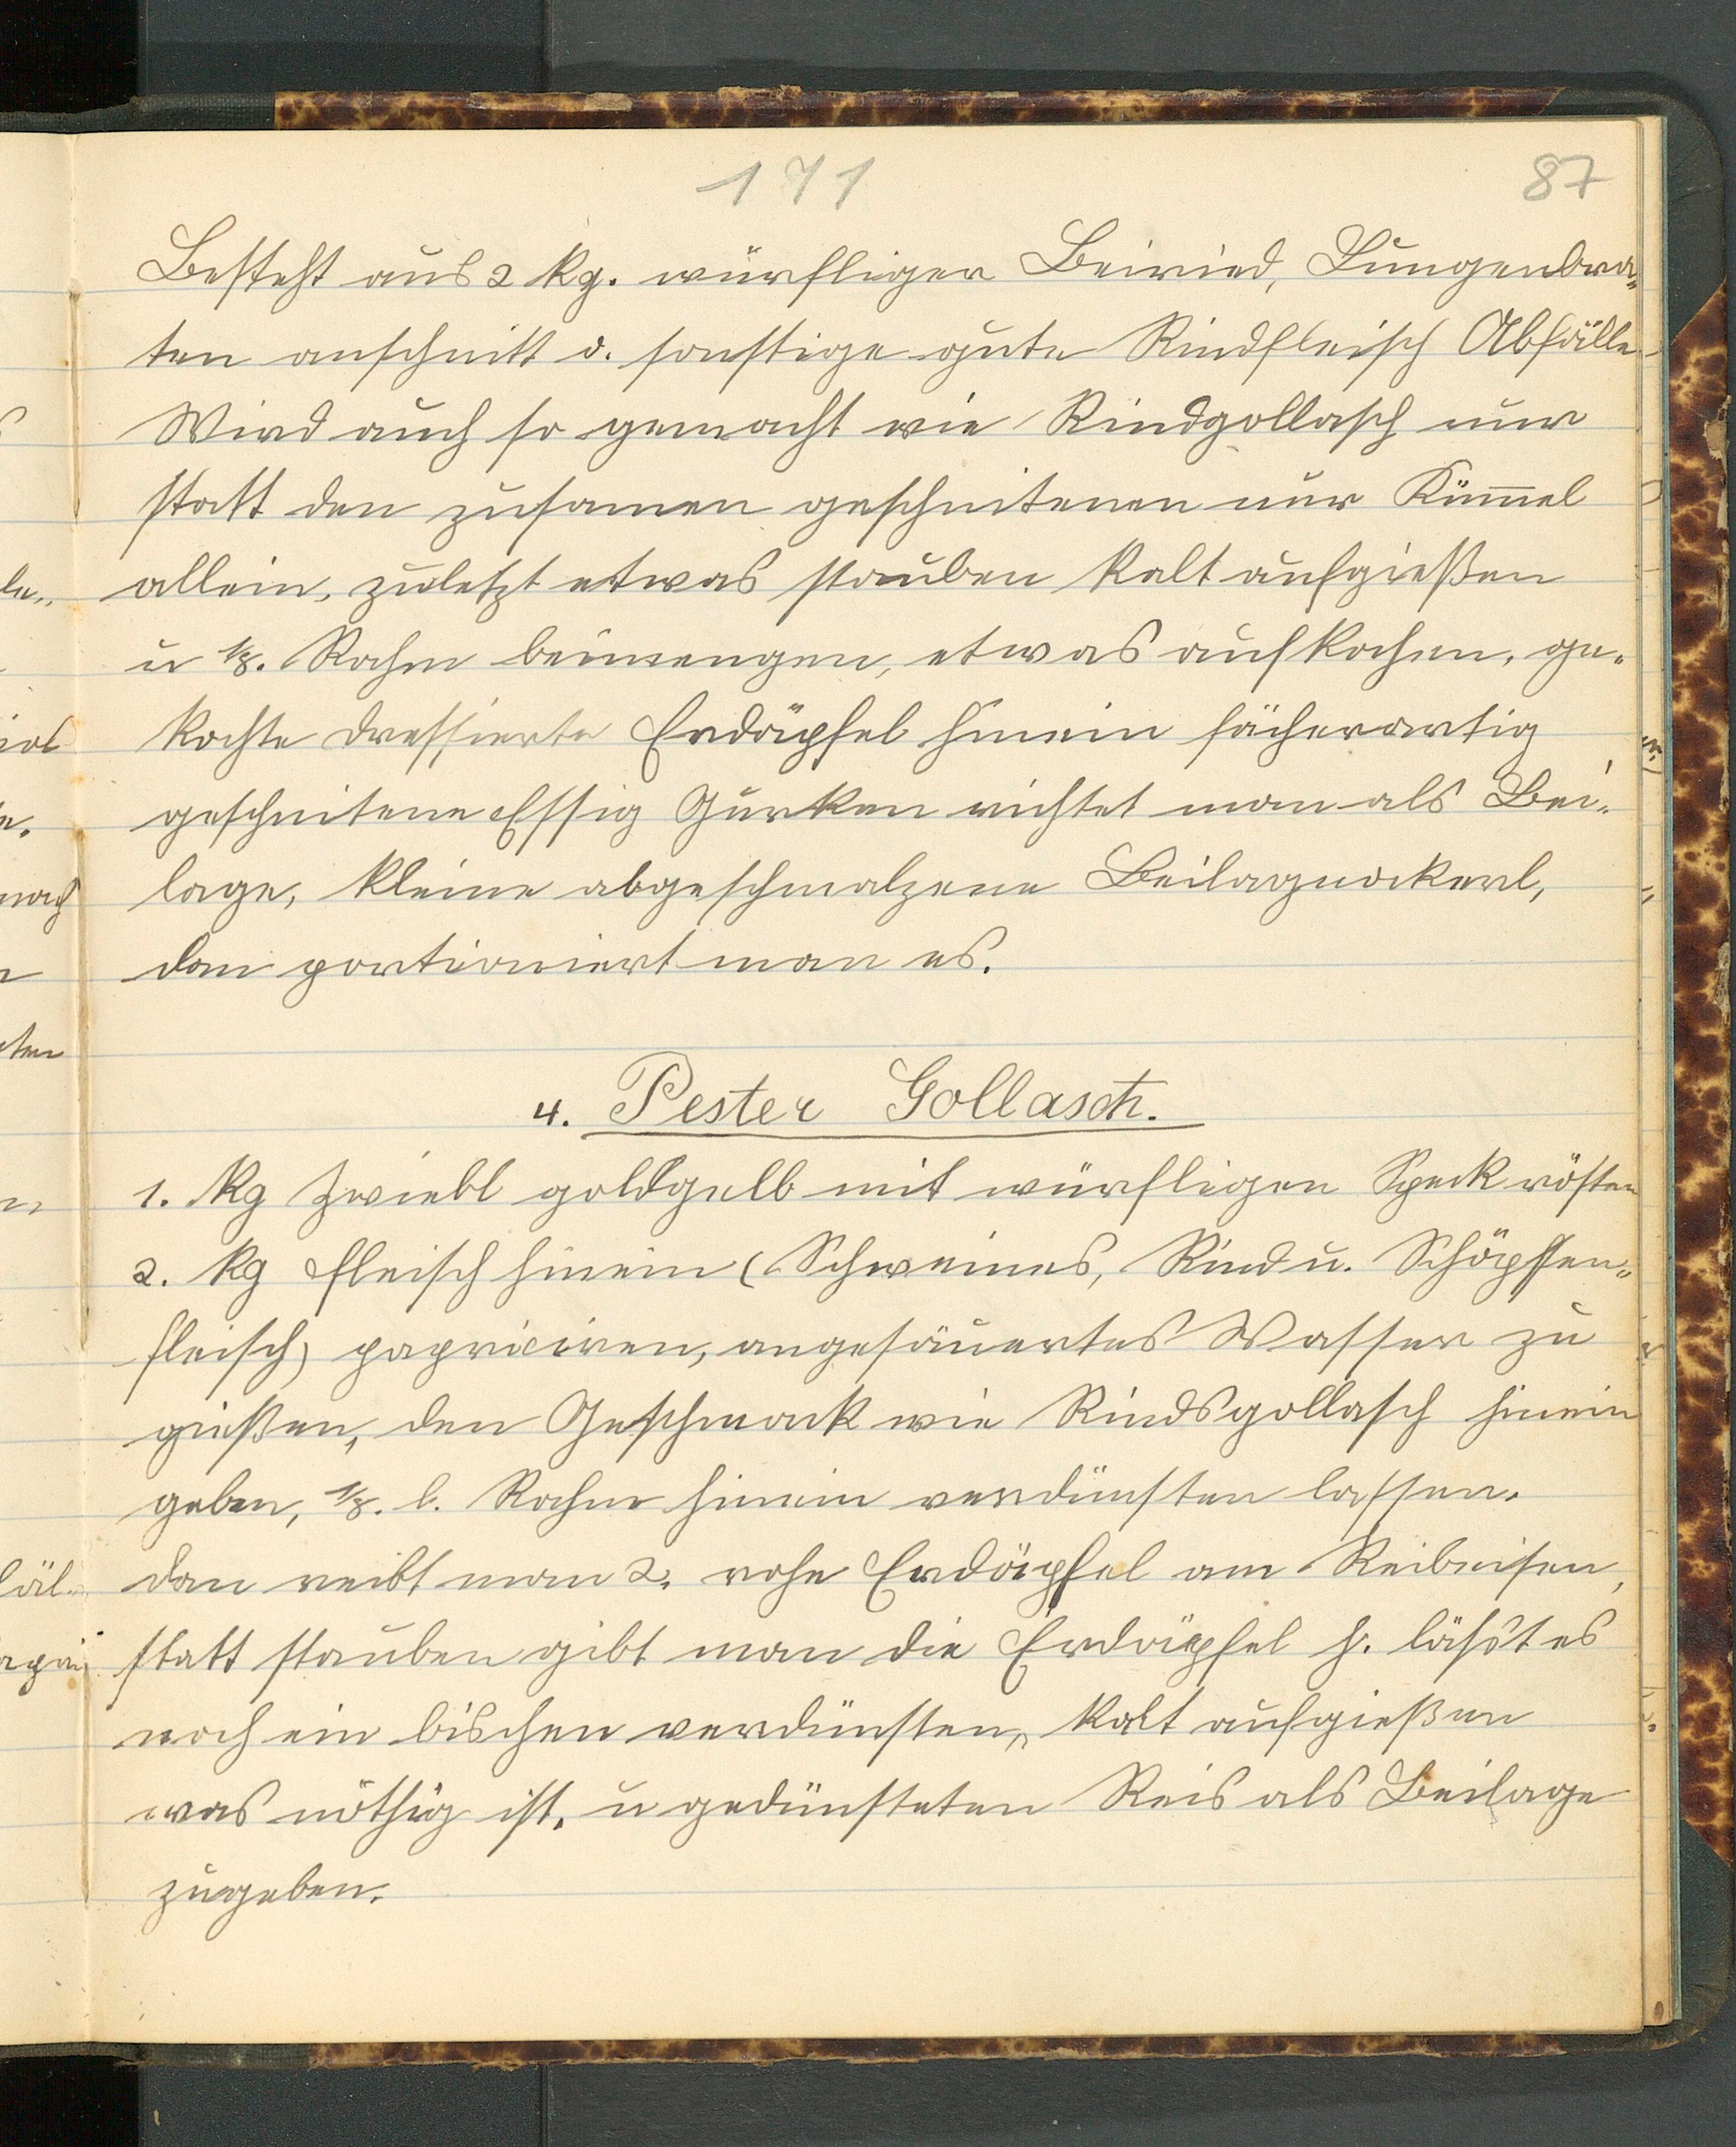 171
87
Besteht aus 2 kg. würfliger Beiried, Lungenbra„
ten anschnitt o. sonstige gute Rindfleisch Abfälle
Wird auch so gemacht wie Rindgollasch nur
statt den zusamen geschnitenen nur Kümel
allein, zuletzt etwas stauben kalt aufgießen
u 1/8. Rahm beimengen, etwas aufkochen, ge„
kochte dressierte Erdäpfel hinein fächerartig
geschnitene Essig Gurken richtet man als Bei„
lage, kleine abgeschmalzene Beilagnockerl,
dan portioniert man es.
4. Pester Gollasch.
1. kg Zwiebl goldgelb mit würfligen Speck rösten
2. kg fleisch hinein (Schweines, Rind u. Schöpsen„
fleisch) papriciren, angesäuertes Wasser zu
gießen, den Geschmack wie Rindsgollasch hinein
geben, 1/8. l. Rahm hinein verdünsten lassen.
dan reibt man 2. rohe Erdäpfel am Reibeisen,
statt stauben gibt man die Erdäpfel h. läßt es
noch ein bischen verdünsten, kalt aufgießen
was nöthig ist, u gedünsteten Reis als Beilage
zugeben.